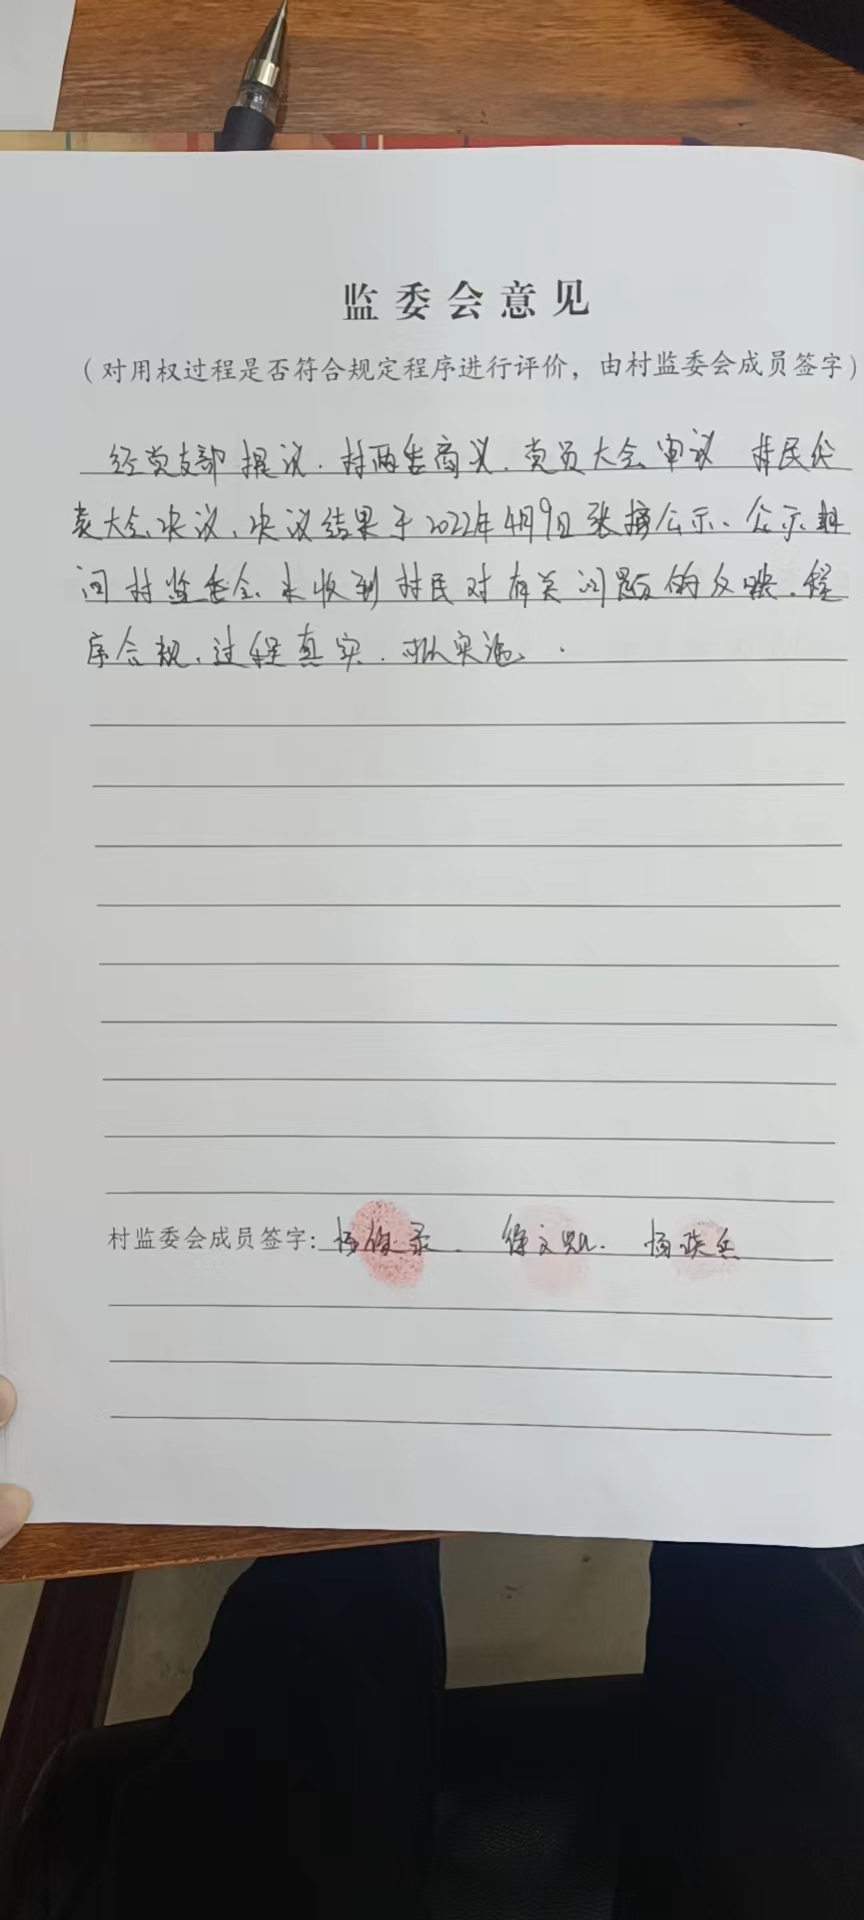 监委会意见
（对用权过程是否符合规定程序进行评价，由村监委会成员签字）
经党支部提议、村两委商议、党员大会审议 村民代
表大会决议、决议结果于2022年4月9日张榜公示、公示期
间村监委会未收到村民对有关问题的反映、程
序合规、过程真实、可以实施.
村监委会成员签字：杨俊录、徐文